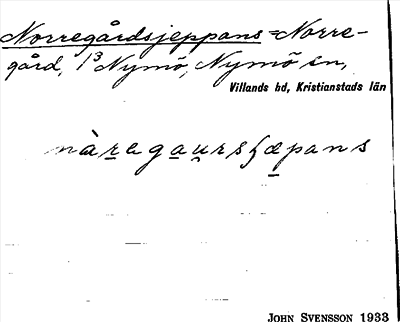 Norregårdsjeppans = Norre-
gård, 1³ Nymö, Nymö sn,
Villands hd, Kristianstads län
nàregaursʃæpans
JOHN SVENSSON 1933